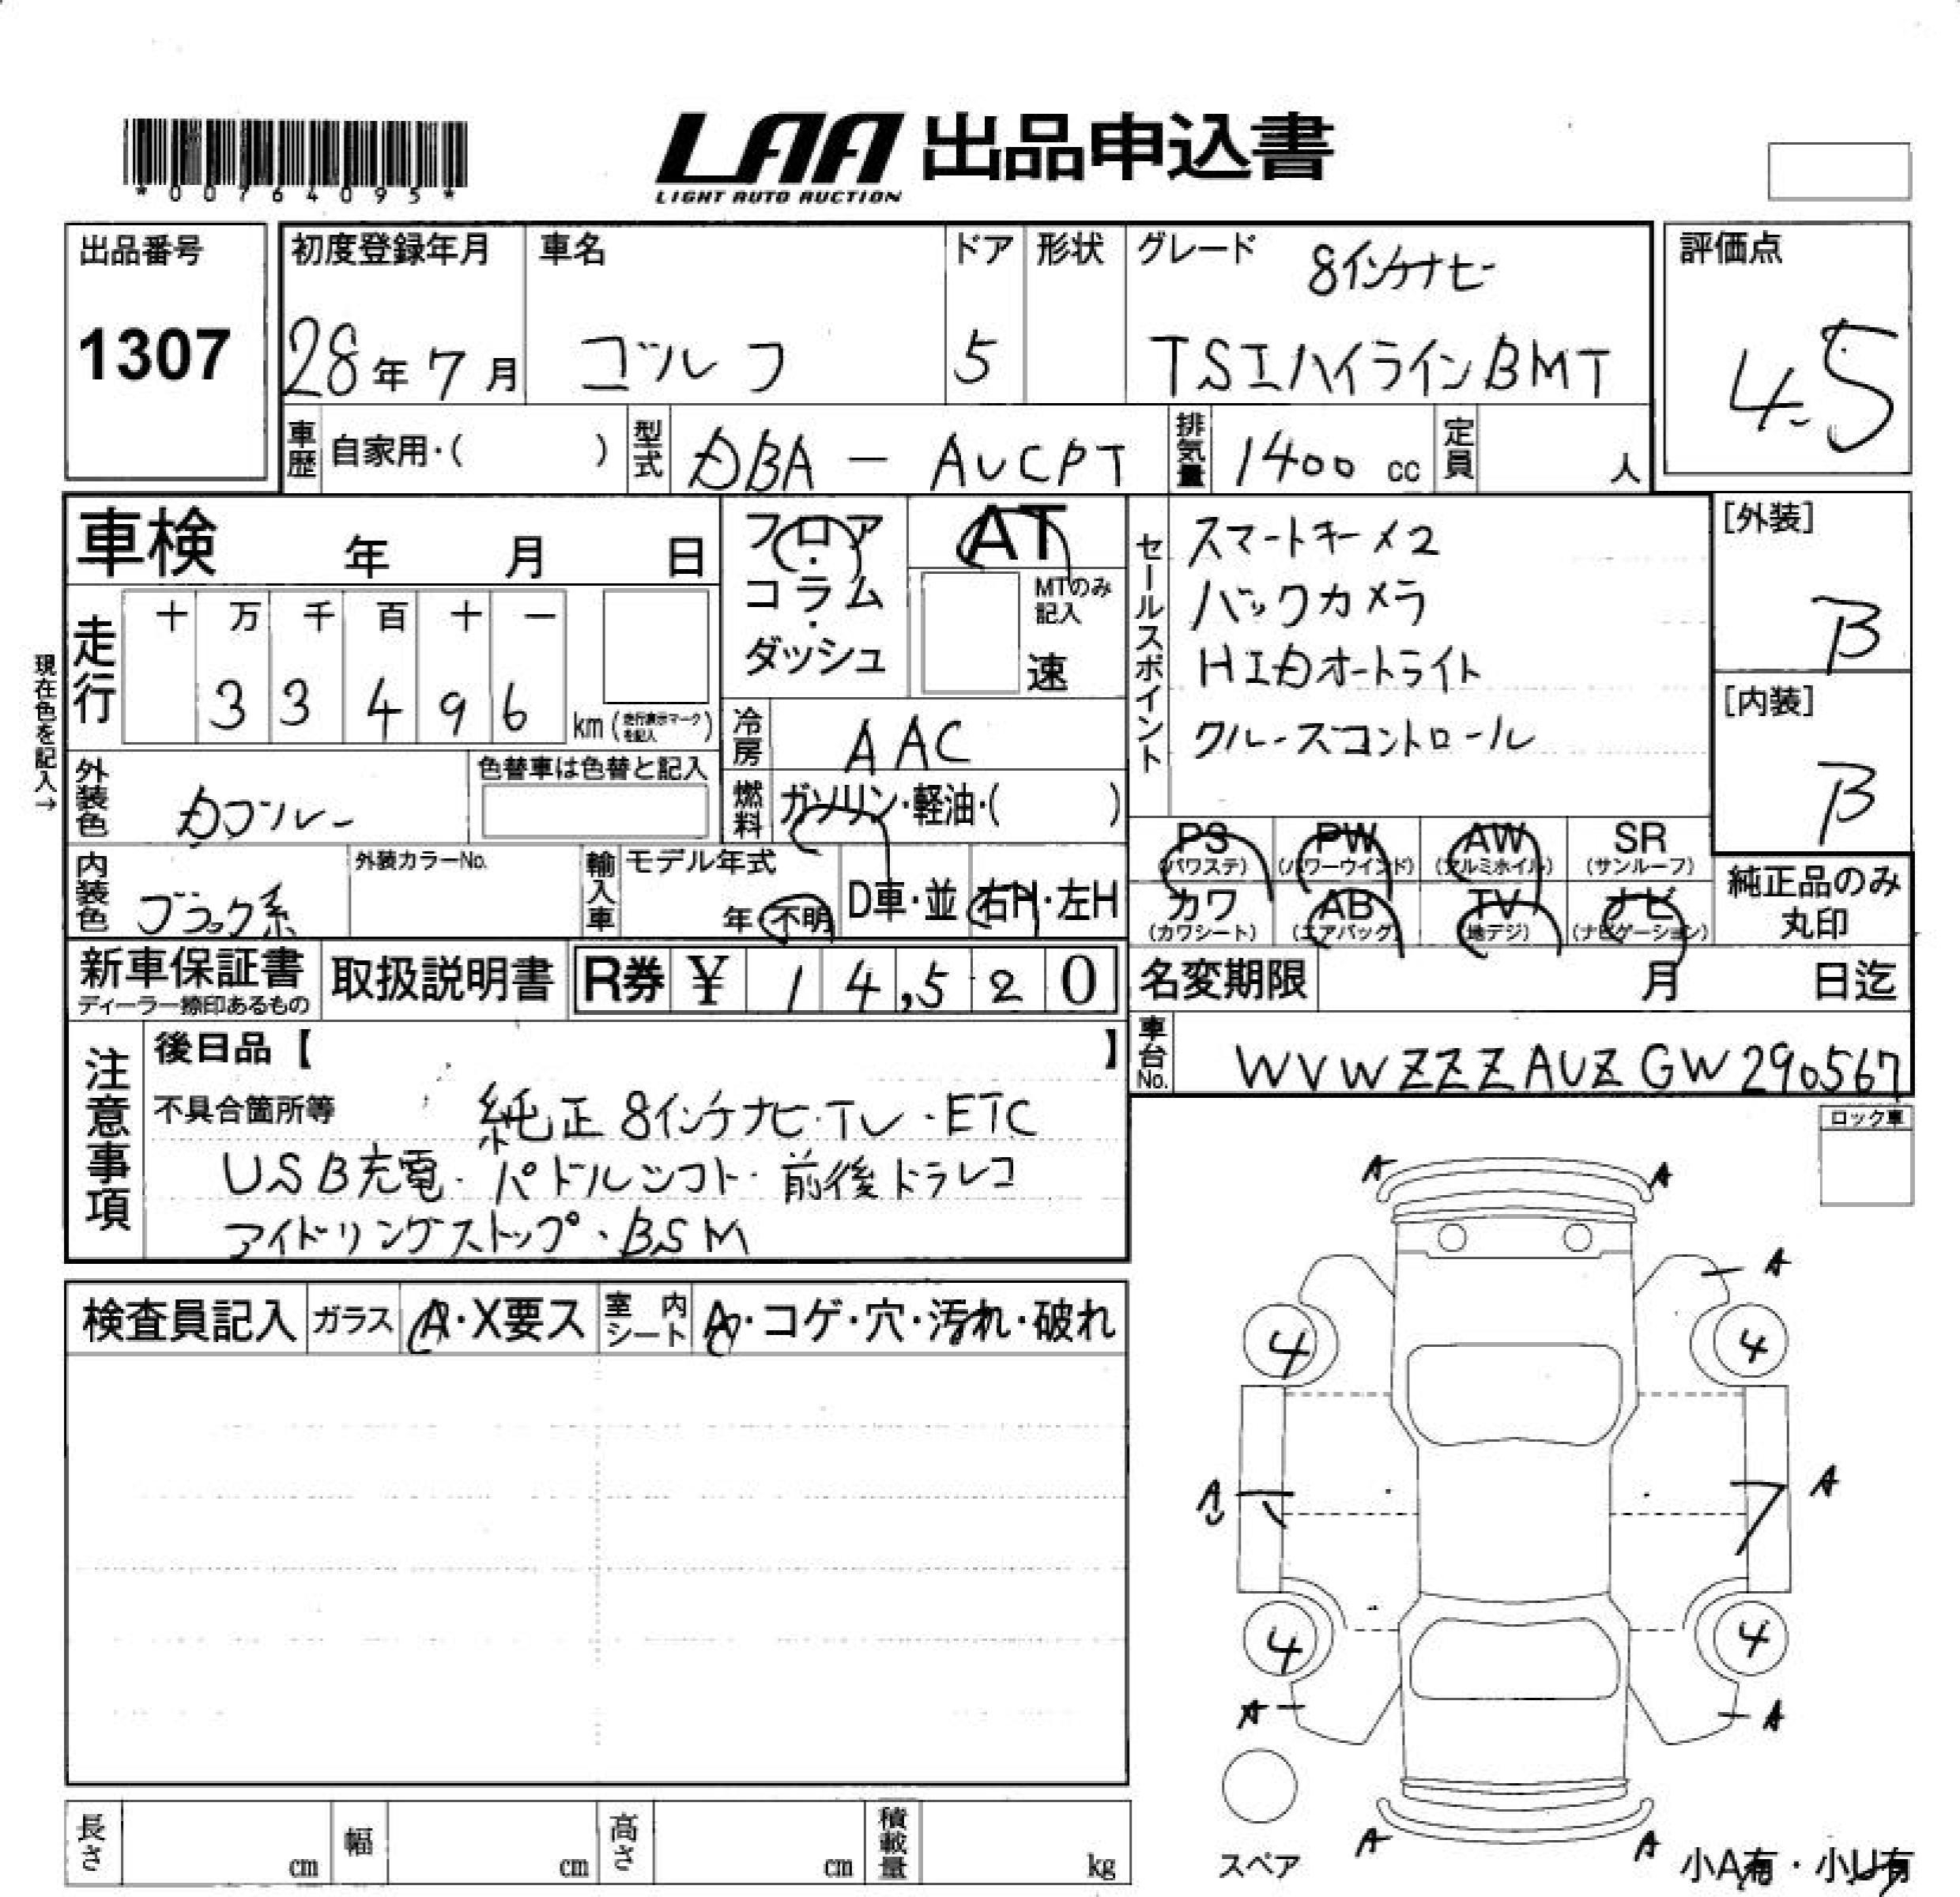 *00764095*
LAA 出品申込書
LIGHT AUTO AUCTION
出品番号
1307
初度登録年月
28年7月
車名
ゴルフ
ドア
5
形状
グレード
8インチナビ
TSIハイラインBMT
評価点
4.5
車歴 自家用・( )
型式 DBA - AUCPT
排気量 1400 cc
定員 人
車検 年 月 日
フロア・コラム・ダッシュ
AT
MTのみ記入
速
セールスポイント
スマートキー×2
バックカメラ
HIDオートライト
クルースコントロール
[外装]
B
[内装]
B
現在色を記入→
走行
十 万 千 百 十 一
3 3 4 9 6
km (走行表示マークを記入)
冷房 AAC
外装色 Dブルー
色替車は色替と記入
燃料 ガソリン・軽油・( )
PS (パワステ) PW (パワーウインド) AW (アルミホイル) SR (サンルーフ)
カワ (カワシート) AB (エアバッグ) TV (地デジ) ナビ (ナビゲーション)
純正品のみ
丸印
内装色 ブラック系
外装カラーNo.
輸入車
モデル年式
年 不明
D車・並
右H・左H
新車保証書
ディーラー捺印あるもの
取扱説明書
R券 ¥ 14,520
名変期限 月 日迄
車台No. WVWZZZAUZGW290567
注意事項
後日品【 】
不具合箇所等 純正8インチナビ・TV・ETC
USB充電・パドルシフト・前後ドラレコ
アイドリングストップ・BSM
ロック車
検査員記入 ガラス A・X要ス 室内シート A・コゲ・穴・汚れ・破れ
A A
A
4 4
A A
4 4
A A
A A
スペア
小A有・小U有
長さ cm 幅 cm 高さ cm 積載量 kg